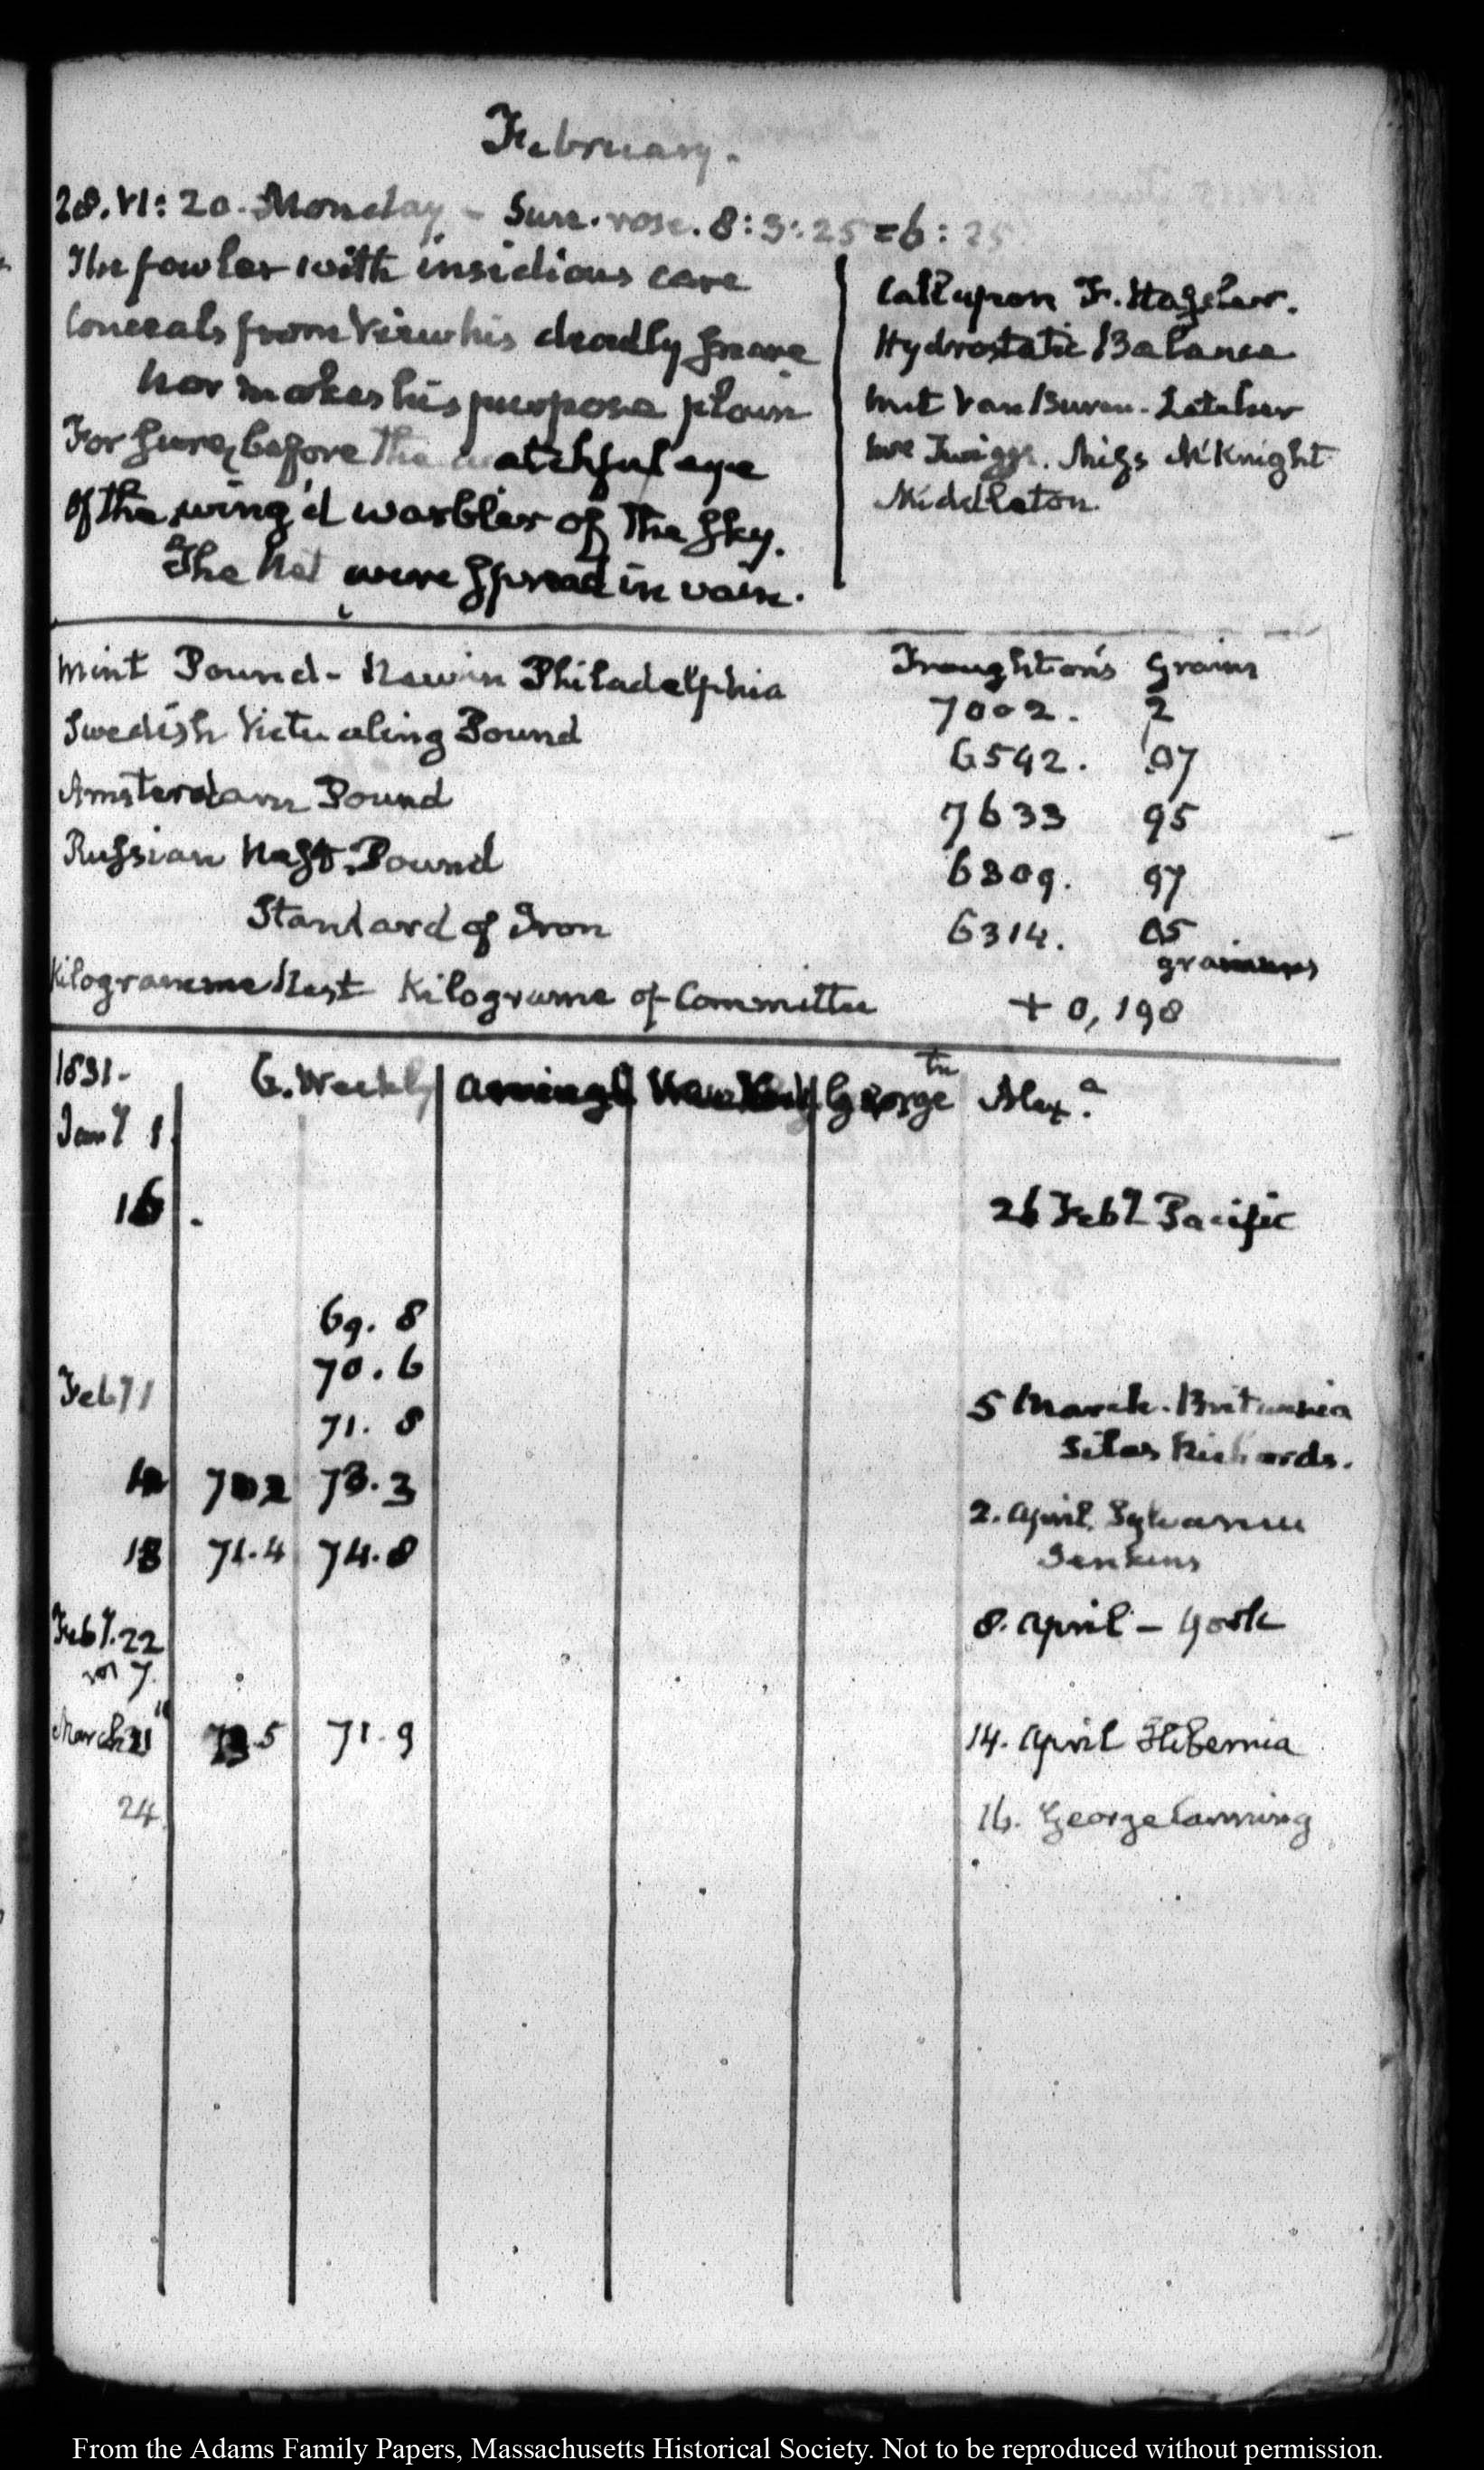 February.
28. VI: 20. Monday - Sun. rose. 8:3:25 = 6:25
The fowler with insidious care
Conceals from View his deadly snare
Nor makes his purpose plain
For sure, before the watchful eye
Of the wing'd warbler of the sky.
The Net were spread in vain.
Call upon F. Hassler.
Hydrostatic Balance
met Van Buren. Letcher
Twiggs. Miss McKnight
Middleton.
Mint Pound - Now in Philadelphia
Troughton's Grains
7002. 2
Swedish Victualing Pound
6542. 07
Amsterdam Pound
7633 95
Russian Pound
6309. 97
Standard of Iron
6314. 05
Kilogramme Kilogramme of Committee
+ 0,198
1831.
G. Weekly
George tn
Alex.a
Jany 1
16
26 Feby Pacific
69. 8
70. 6
Feby 1
71. 8
5 March. Britannia
Silas Richards.
73. 3
2. April. Sylvanus
Jenkins
71.4 74.8
Feby. 22
8. April - York
March 71.9
14. April Hibernia
24
16. George Canning
From the Adams Family Papers, Massachusetts Historical Society. Not to be reproduced without permission.